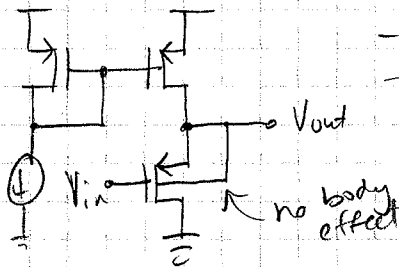 Vout
Vin
no body
effect